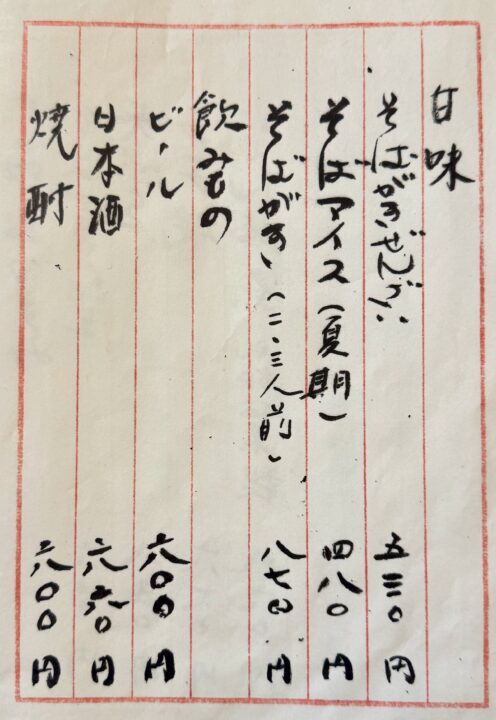 甘味
そばがきぜんざい 五三〇円
そばアイス(夏期) 四八〇円
そばがき(二・三人前) 八七〇円
飲みもの
ビール 六〇〇円
日本酒 六六〇円
焼酎 六〇〇円